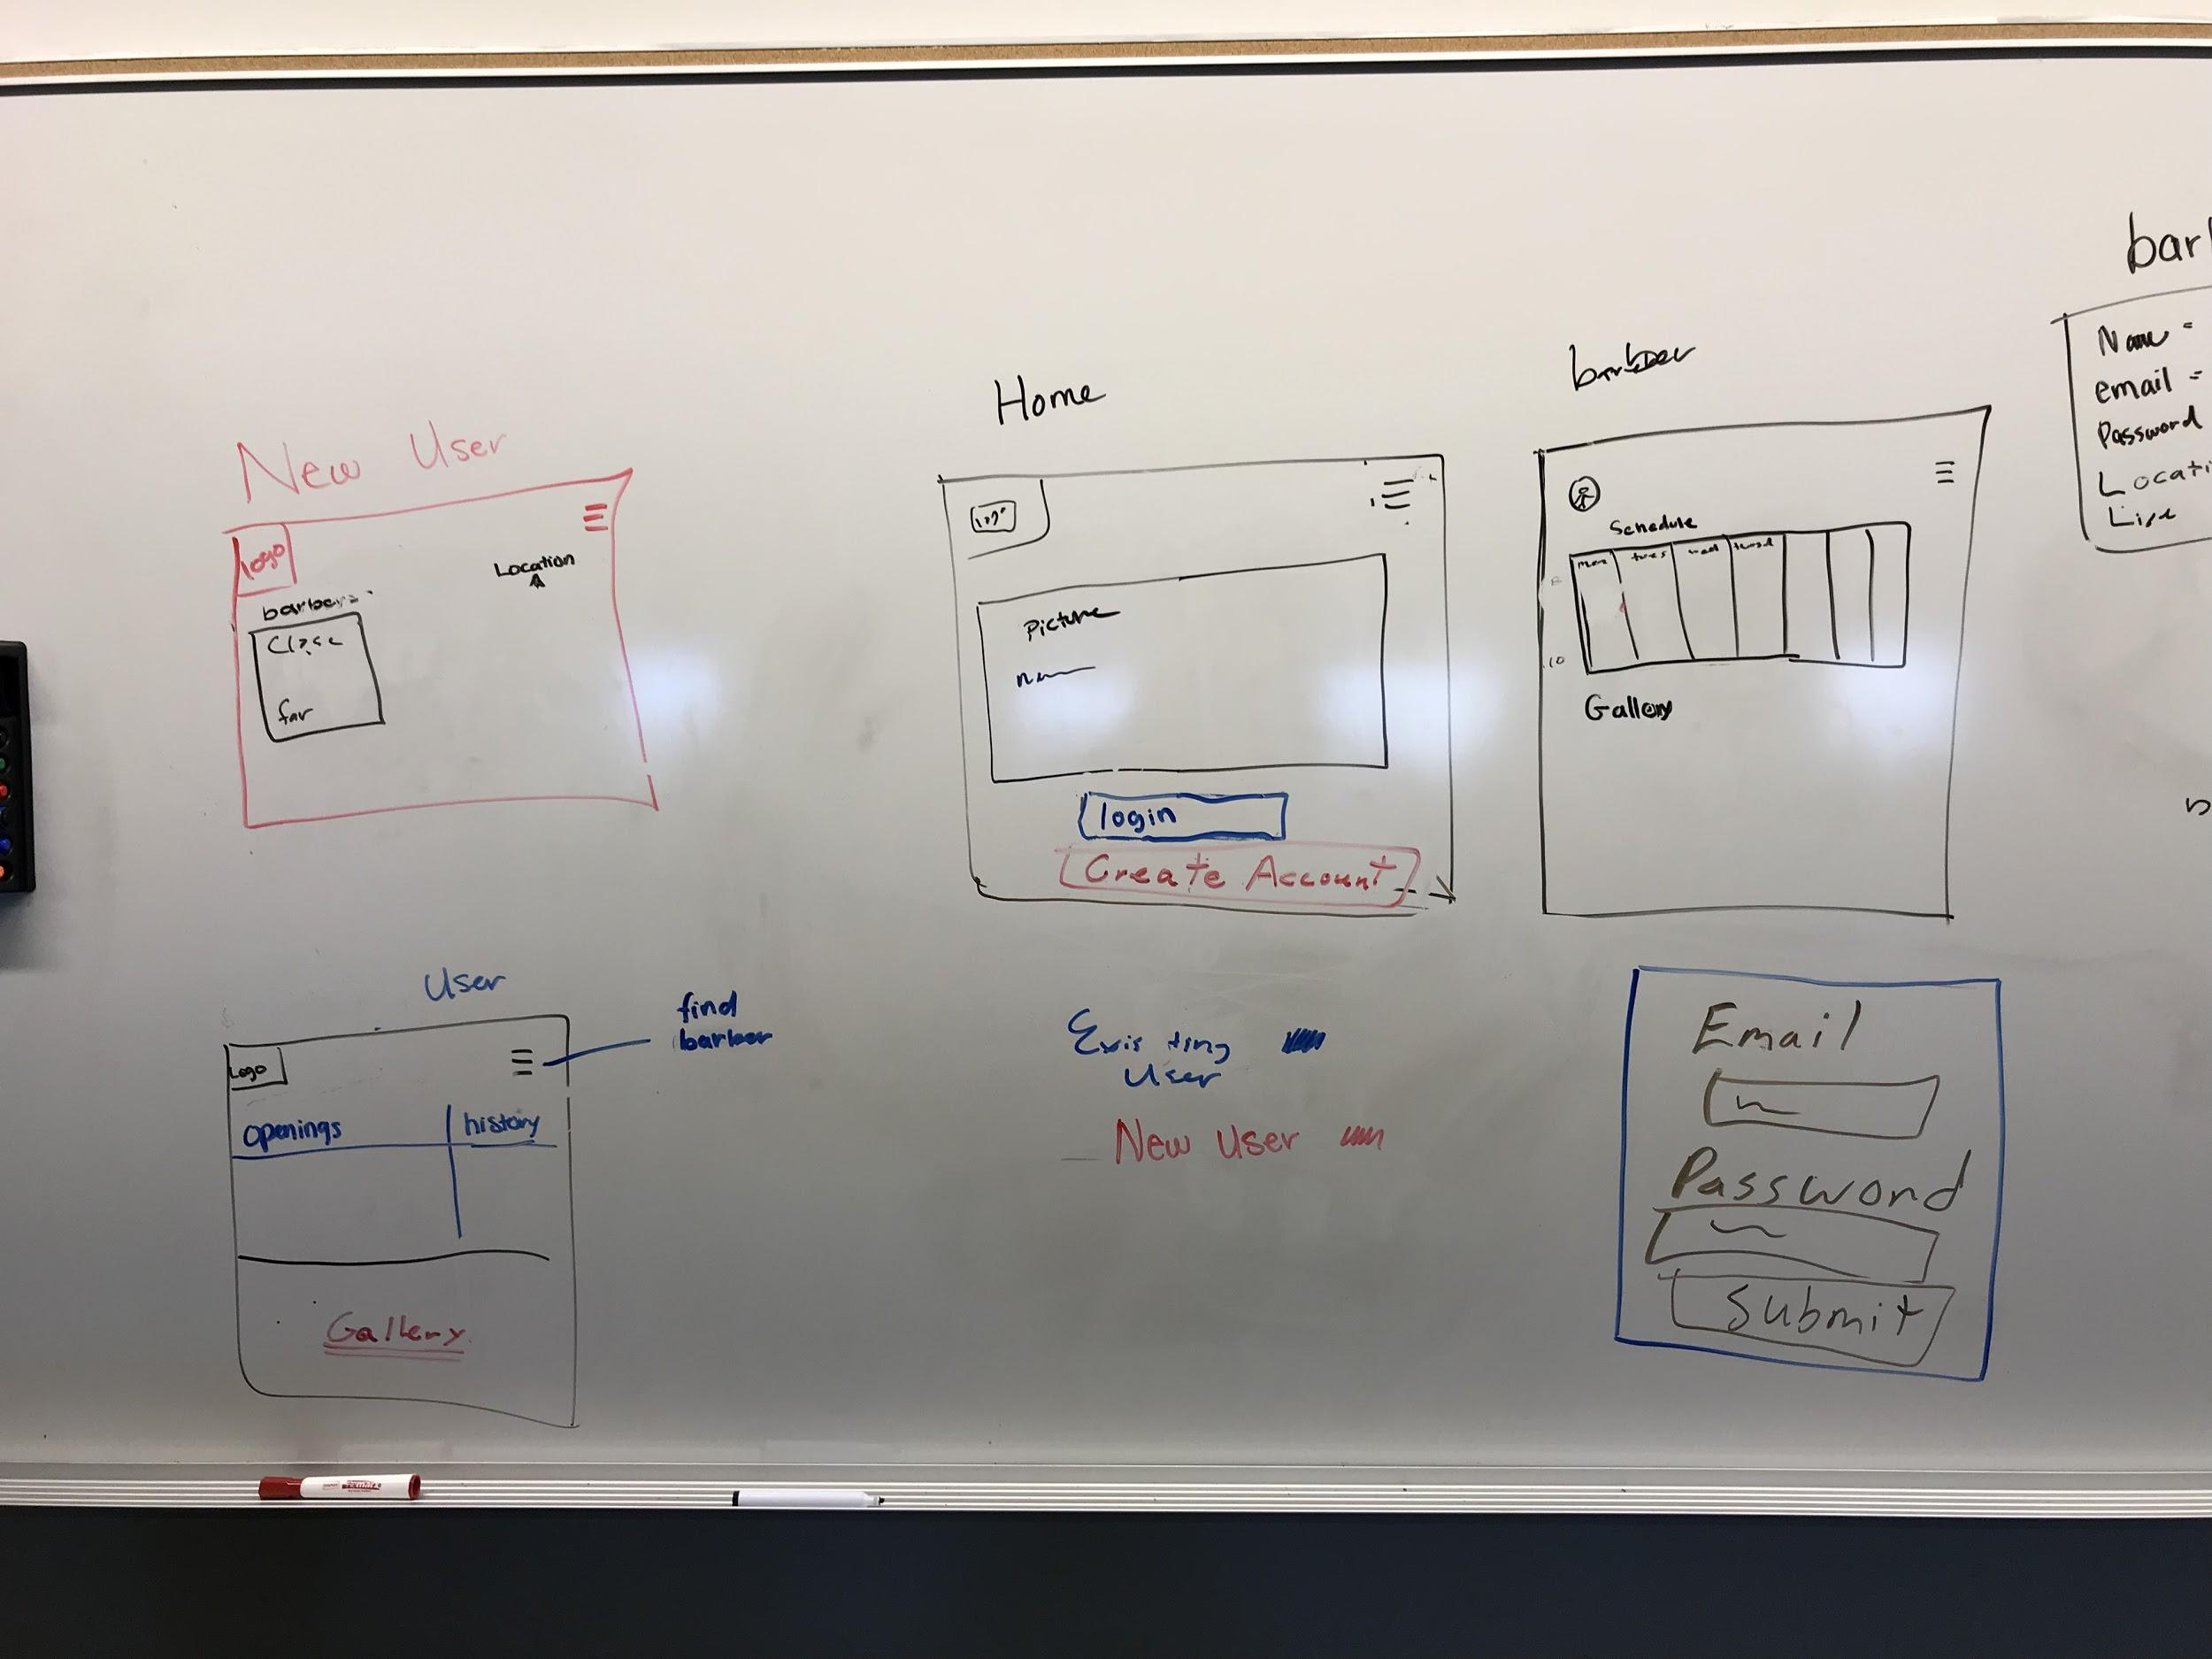 New User
logo
Location
barbers
Close
far
Home
logo
Picture
login
Create Account
barber
Schedule
mon tues wed thursd
10
Gallery
bar
Name =
email =
Password
Locati
User
find
barber
Logo
openings history
Gallery
Existing
User
New User
Email
Password
Submit